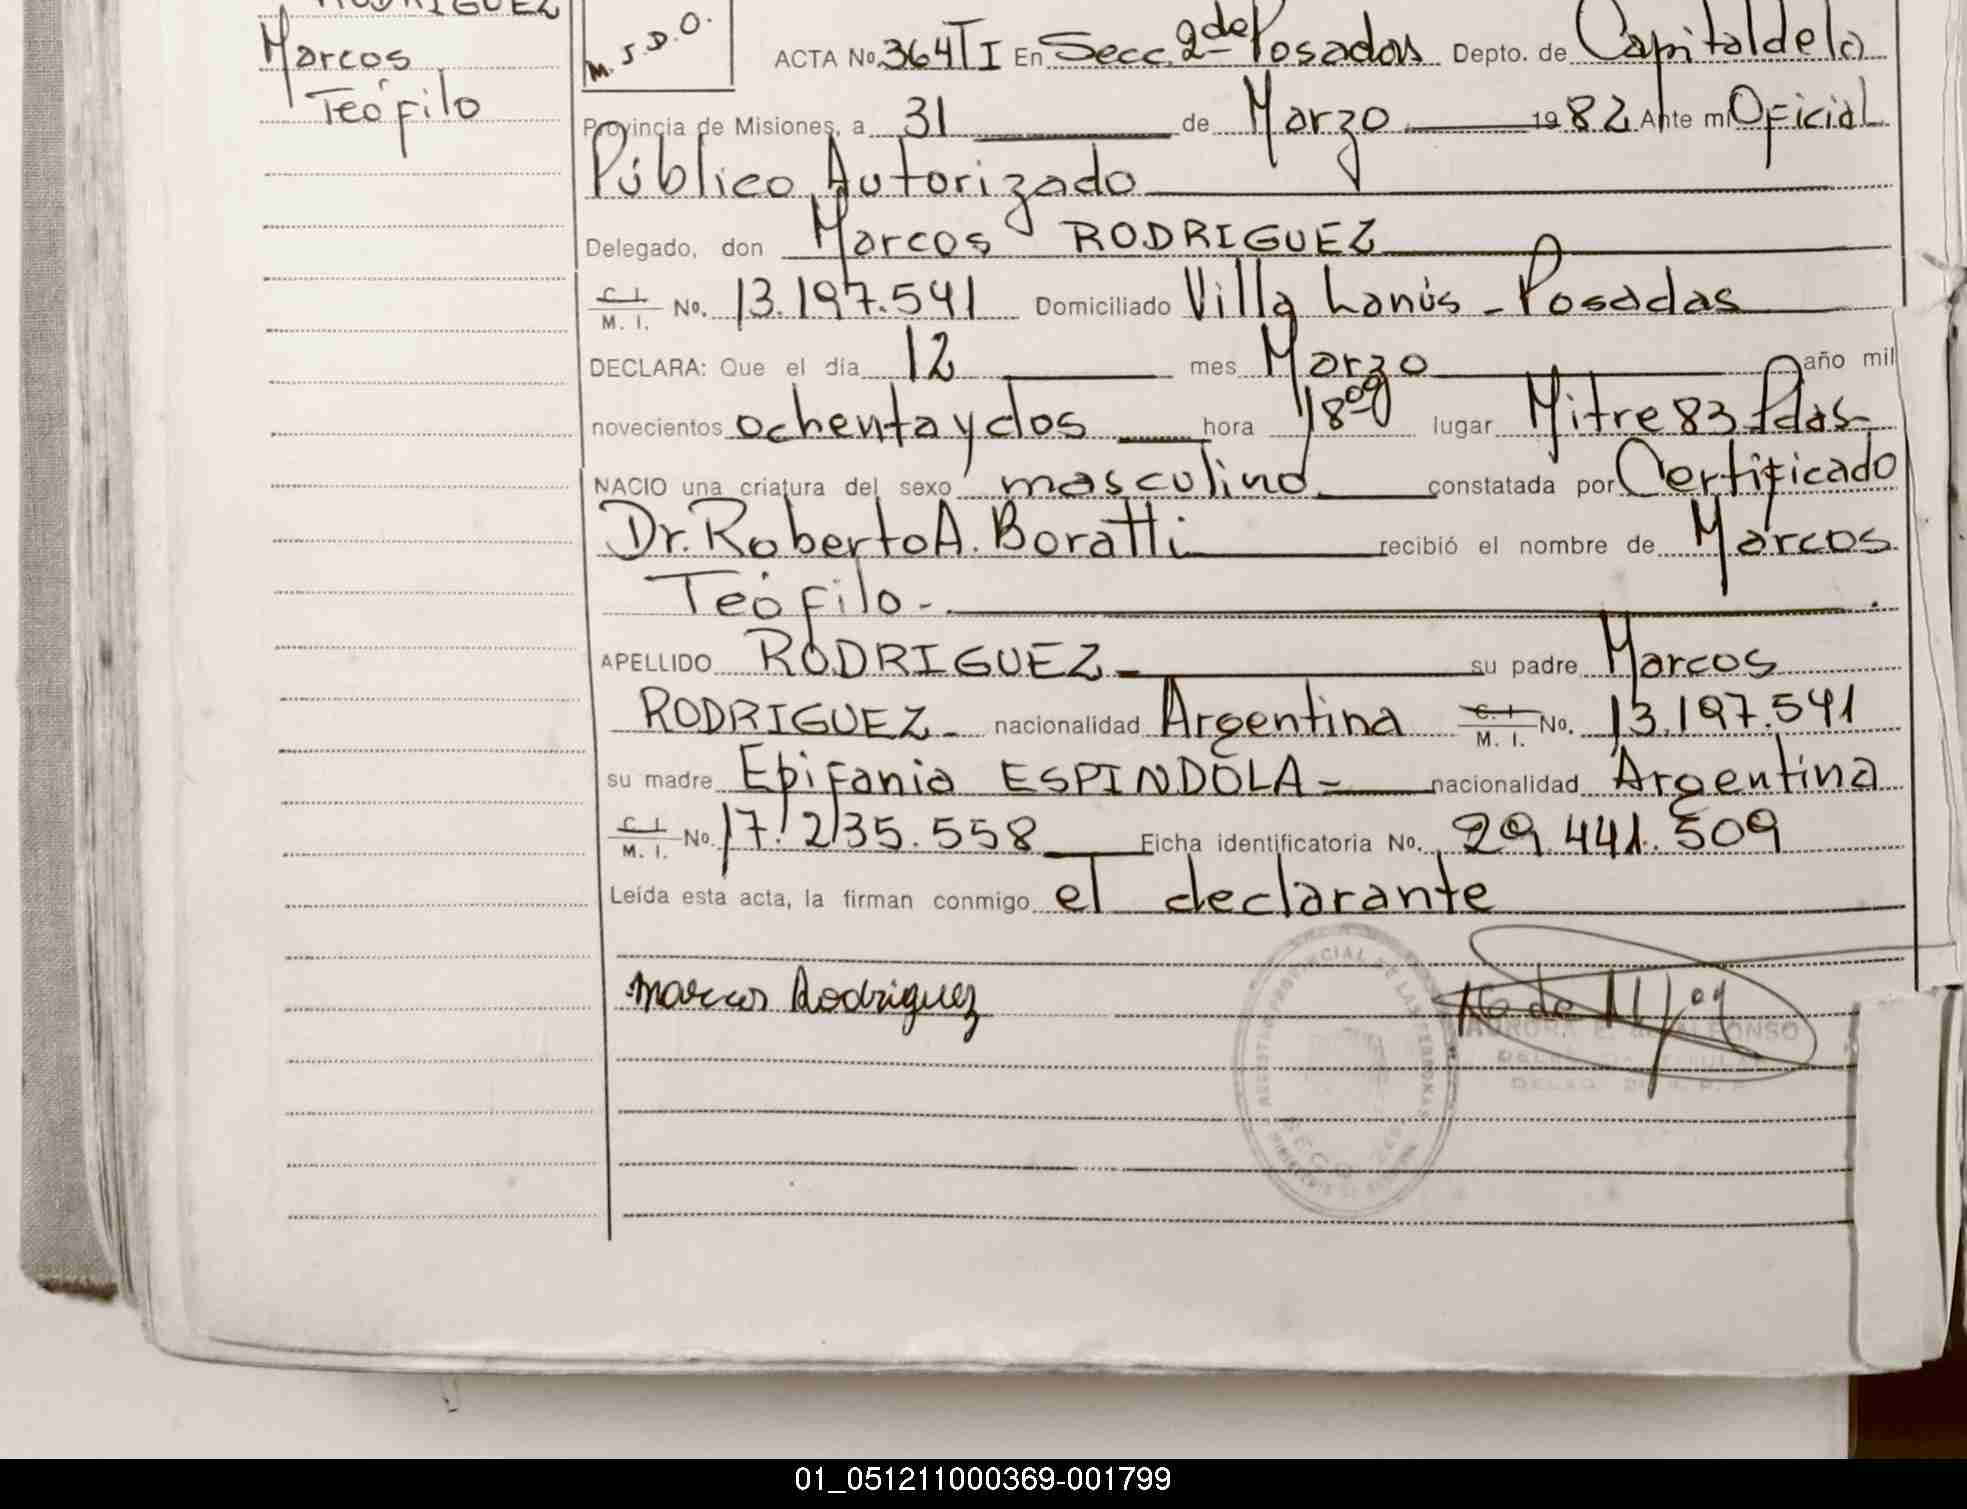 RODRIGUEZ
Marcos
Teófilo
M. S. D. O.
ACTA No. 364 T I En Secc. 2da Posadas Depto. de Capital de la
Provincia de Misiones, a 31 de Marzo 1982 Ante mi Oficial
Público Autorizado
Delegado, don Marcos RODRIGUEZ
C. I. M. I. No. 13.197.541 Domiciliado Villa Lanús - Posadas
DECLARA: Que el día 12 mes Marzo año mil
novecientos ochenta y dos hora 18 00 lugar Mitre 83 Pdas-
NACIO una criatura del sexo masculino constatada por Certificado
Dr. Roberto A. Boratti recibió el nombre de Marcos
Teófilo.-
APELLIDO RODRIGUEZ - su padre Marcos
RODRIGUEZ - nacionalidad Argentina C. I. M. I. No. 13.197.541
su madre Epifania ESPINDOLA - nacionalidad Argentina
C. I. M. I. No. 17.235.558 Ficha identificatoria No. 29.441.509
Leída esta acta, la firman conmigo el declarante
Marcos Rodriguez
REGISTRO PROVINCIAL DE LAS PERSONAS
01_051211000369-001799